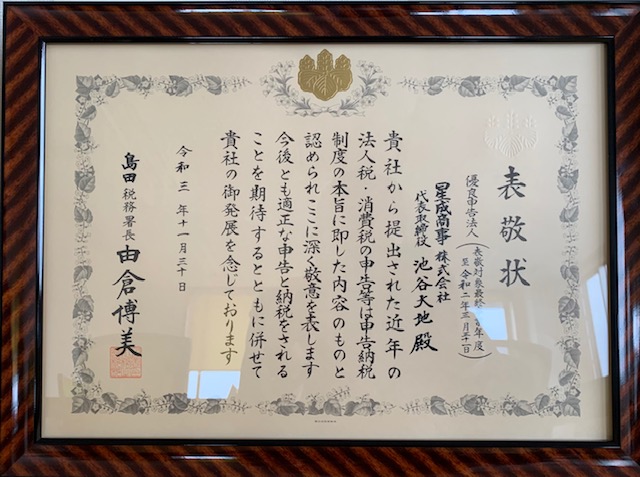 表敬状
優良申告法人
(表敬対象最終事業年度
至令和二年三月三十一日)
星成商事株式会社
代表取締役 池谷大地殿
貴社から提出された近年の
法人税・消費税の申告等は申告納税
制度の本旨に即した内容のものと
認められここに深く敬意を表します
今後とも適正な申告と納税をされる
ことを期待するとともに併せて
貴社の御発展を念じております
令和三年十一月三十日
島田税務署長 由倉博美